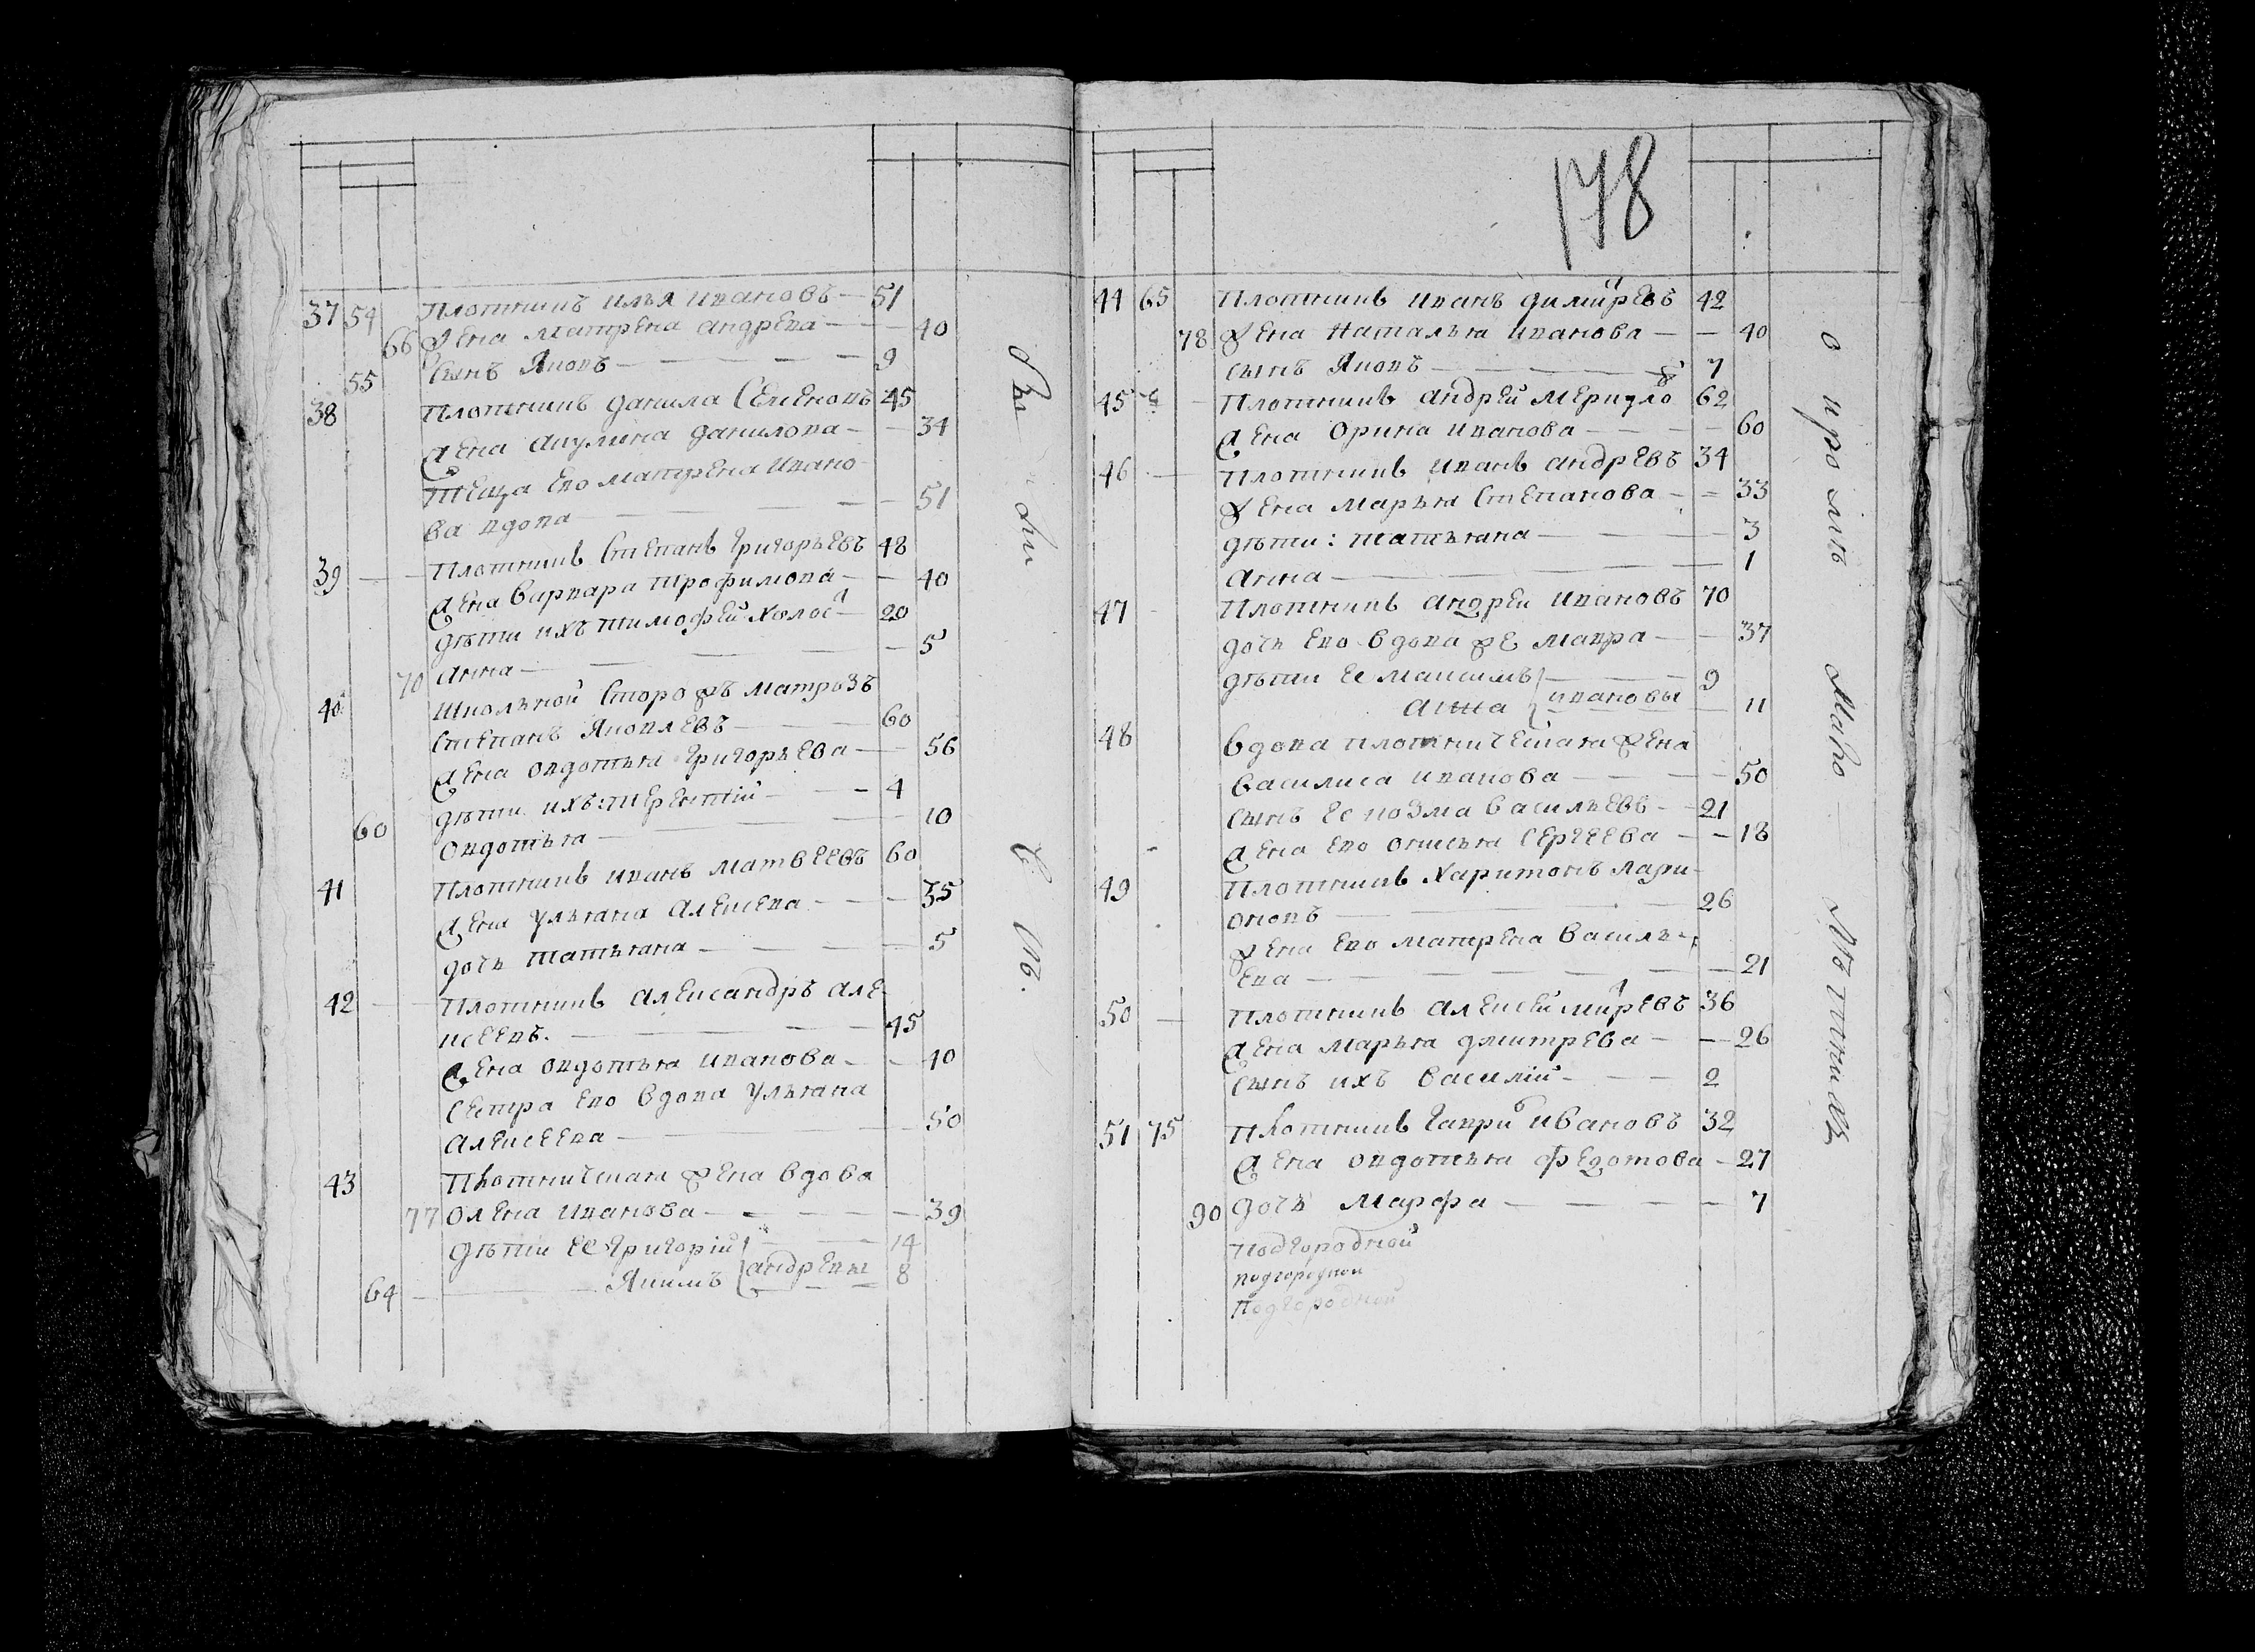 37 54 Плотникъ илья ивановъ — 51
66 Жена матрена андрева — 40
55 Сынъ Яковъ — 9
38 Плотникъ данила Семеновъ 45
Жена акулина данилова — 34
теща ево матрена ивано
ва вдова — 51
39 Плотникъ Степанъ Григорьевъ 48
Жена варвара трофимова — 40
дѣти ихъ тимофей холос 20
70 анна — 5
40 Школьной Сторожъ матрозъ
Степанъ Яковлевъ — 60
Жена овдотья Григорьева — 56
дѣти ихъ: терентій — 4
60 Овдотья — 10
41 Плотникъ иванъ матвеевъ 60
Жена ульяна алексева — 35
дочь татьяна — 5
42 Плотникъ александръ але-
ксеевъ. — 45
Жена овдотья иванова — 40
Сестра ево вдова ульяна
алексеева — 50
43 Плотничья жена вдова
77 олена иванова — 39
дѣти ее Григорій 14
64 Якимъ андревы 8
178
44 65 Плотникъ иванъ димитревъ 42
78 Жена наталья иванова — 40
сынъ Яковъ — 7
45 Плотникъ андрей 62
Жена орина иванова — 60
46 Плотникъ иванъ андревъ 34
Жена марья степанова — 33
дѣти: татьяна — 3
анна — 1
47 Плотникъ андрей ивановъ 70
дочь ево вдова же мавра — 37
дѣти ее максимъ 9
анна ивановы 11
48 вдова плотническая жена
василиса иванова — 50
сынъ ее козма васильевъ — 21
Жена ево онисья сергеева — 18
49 Плотникъ харитонъ лари-
оновъ — 26
Жена ево матрена василь-
ева — 21
50 Плотникъ алексей митревъ 36
Жена марья дмитрева — 26
Сынъ ихъ василій — 2
51 75 Плотникъ гаври ивановъ 32
Жена овдотья федотова — 27
90 дочь марфа — 7
подгородной
подгородной
подгородной